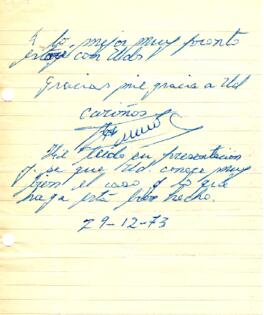 A lo mejor muy pronto
estoy con Uds
Gracias mil gracias a Ud
Cariños
en presentacion
y se que Ud. conoce muy
bien el caso y lo que
haga está bien hecho.
29-12-73